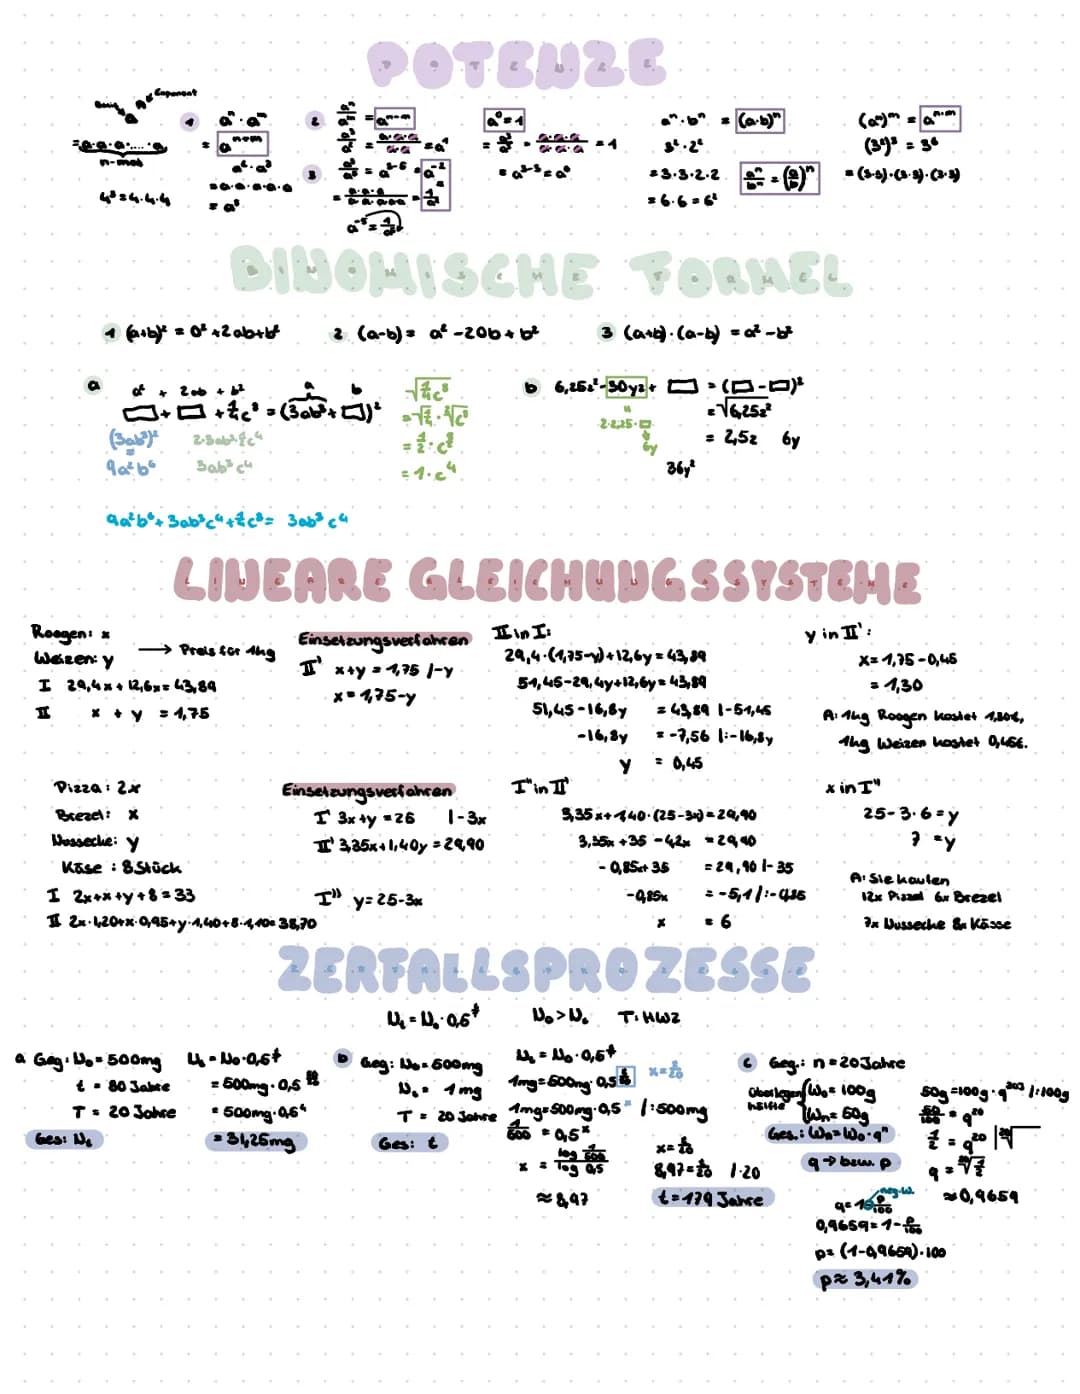 POTENZE
Basis Exponent
a n
= a·a·a·....·a
n-mal
4³ = 4·4·4
1 aⁿ · aᵐ
= aⁿ⁺ᵐ
a² · a³
= a·a·a·a·a
= a⁵
2 aⁿ/aᵐ = aⁿ⁻ᵐ
a³/a² = a·a·a/a·a = a¹
3 a³/a⁵ = a³⁻⁵ = a⁻²
= a·a·a/a·a·a·a·a = 1/a²
a⁻⁵ = 1/a⁵
a⁰ = 1
= a³/a³ = a·a·a/a·a·a = 1
= a³⁻³ = a⁰
aⁿ · bⁿ = (a·b)ⁿ
3² · 2²
= 3·3·2·2
= 6·6 = 6²
aⁿ/bⁿ = (a/b)ⁿ
(aⁿ)ᵐ = aⁿ·ᵐ
(3²)³ = 3⁶
= (3·3)·(3·3)·(3·3)
BINOMISCHE FORMEL
1 (a+b)² = a² + 2ab + b²
2 (a-b) = a² - 2ab + b²
3 (a+b)·(a-b) = a² - b²
a a² + 2ab + b² a b
□ + □ + 1/4 c⁸ = (3ab³ + □)²
(3ab³)² 2·3ab³·1/2c⁴
=
9a²b⁶ 3ab³c⁴
√1/4 c⁸
= √1/4 · ²√c⁸
= 1/2 · c^8/2
= 1 · c⁴
9a²b⁶ + 3ab³c⁴ + 1/4c⁸ = 3ab³ c⁴
b 6,25z² - 30yz + □ = (□ - □)²
= √6,25z²
= 2,5z 6y
=
2·2,25·□
6y
36y²
LINEARE GLEICHUNGSSYSTEME
Roogen: x
Weizen: y → Preis für 1kg
I 29,4x + 12,6x = 43,89
II x + y = 1,75
Einsetzungsverfahren
II' x+y = 1,75 /-y
x = 1,75-y
II in I:
29,4·(1,75-y)+12,6y = 43,89
51,45-29,4y+12,6y = 43,89
51,45-16,8y = 43,89 |-51,45
-16,8y = -7,56 |:-16,8y
y = 0,45
y in II':
x = 1,75 - 0,45
= 1,30
A: 1kg Roogen kostet 1,30€,
1kg Weizen kostet 0,45€.
Pizza: 2x
Brezel: x
Nussecke: y
Käse: 8 Stück
I 2x+x+y+8 = 33
II 2x·1,20+x·0,95+y·1,40+8·1,10 = 38,70
Einsetzungsverfahren
I' 3x+y = 25 |-3x
II' 3,35x+1,40y = 29,90
I'' y = 25-3x
I'' in II'
3,35x+1,40·(25-3x) = 29,90
3,35x + 35 - 4,2x = 29,90
-0,85x+35 = 29,90 |-35
-0,85x = -5,1 /:-0,85
x = 6
x in I''
25-3·6 = y
7 = y
A: Sie kaufen
12x Pizza 6x Brezel
7x Nussecke 8x Kässe
ZERFALLSPROZESSE
Nₜ = N₀ · 0,5^t/T N₀ > Nₜ T: HWZ
a Geg: N₀ = 500mg
t = 80 Jahre
T = 20 Jahre
Ges: Nₜ
Nₜ = N₀·0,5^t/T
= 500mg · 0,5^80/20
= 500mg·0,5⁴
= 31,25mg
b Geg: N₀ = 500mg
Nₜ = 1mg
T = 20 Jahre
Ges: t
Nₜ = N₀ · 0,5^t/T
1mg = 500mg · 0,5^t/20 x = t/20
1mg = 500mg·0,5ˣ /:500mg
1/500 = 0,5ˣ
x = log 1/500 / log 0,5
≈ 8,97
x = t/20
8,97 = t/20 |·20
t = 179 Jahre
c Geg.: n = 20 Jahre
überlegen Hälfte { W₀ = 100g
Wn = 50g
Ges.: Wn = W₀·qⁿ
q → bzw. p
50g = 100g · q²⁰ /:100g
50/100 = q²⁰
1/2 = q²⁰ | ²⁰√
q = ²⁰√1/2
≈ 0,9659
neg.W.
q = 1 - p/100
0,9659 = 1 - p/100
p = (1-0,9659)·100
p ≈ 3,41%